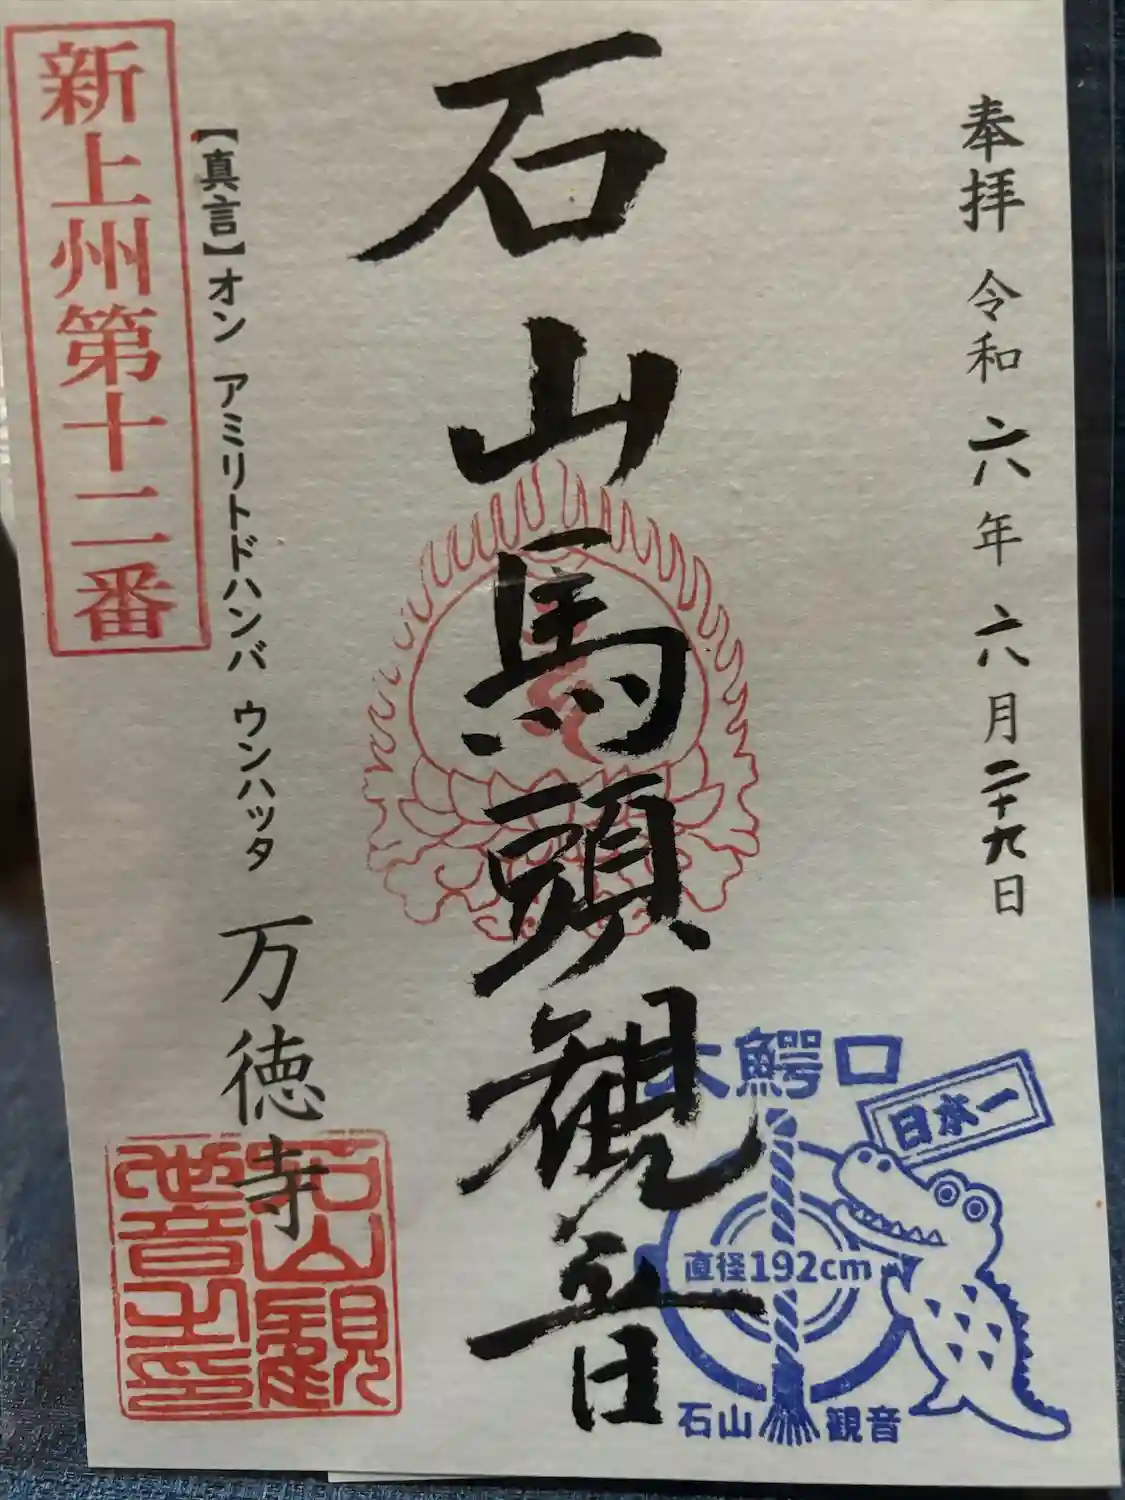 奉拝 令和六年六月二十九日
石山馬頭観音
【真言】オン アミリトドハンバ ウンハッタ
万徳寺
新上州第十二番
大鰐口
日本一
直径192cm
石山 観音
石山観
世音之印